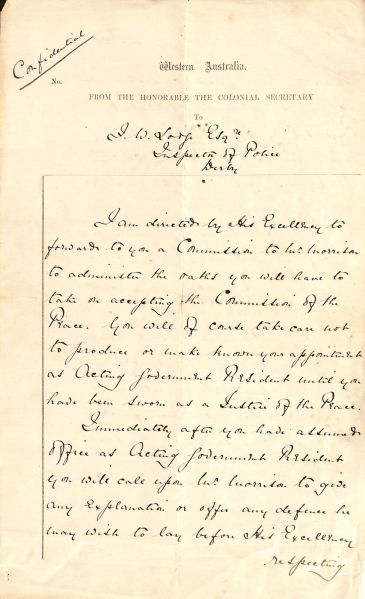 Confidential
Western Australia.
No.
FROM THE HONORABLE THE COLONIAL SECRETARY
To
J. W. Lodge Esqre
Inspector of Police
Derby
I am directed by His Excellency to
forward to you a Commission to Mr Morrison
to administer the oaths you will have to
take on accepting the Commission of the
Peace. You will of course take care not
to produce or make known your appointment
as Acting Government Resident until you
have been sworn as a Justice of the Peace.
Immediately after you have assumed
office as Acting Government Resident
you will call upon Mr Morrison to give
any explanation or offer any defence he
may wish to lay before His Excellency
respecting